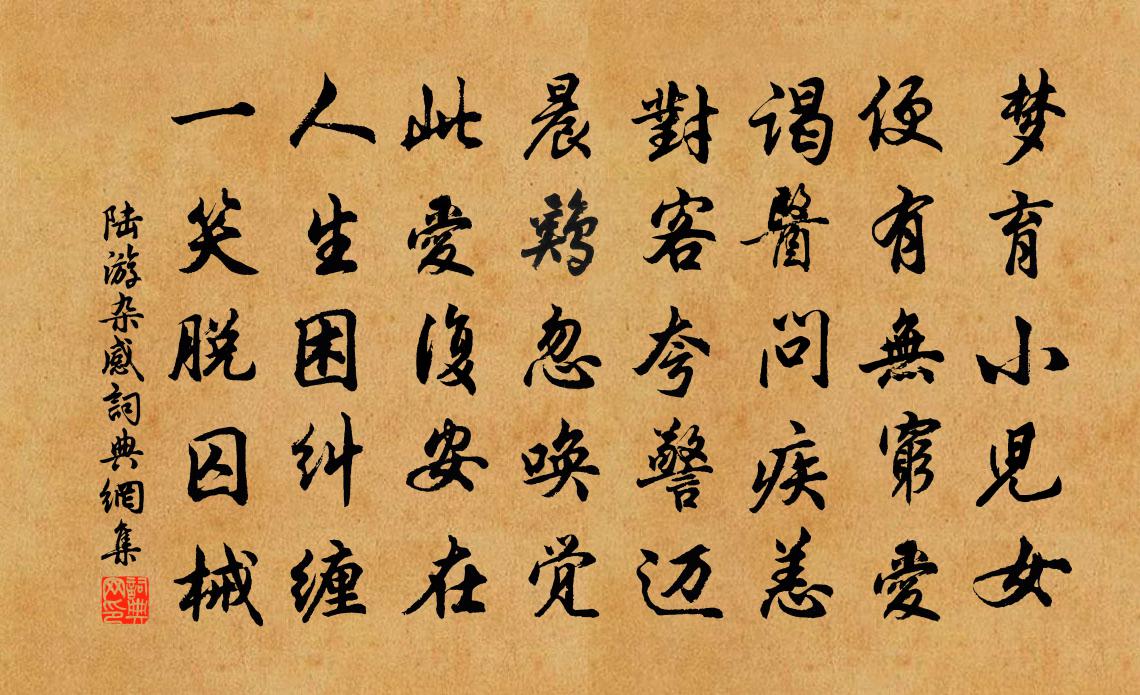 梦育小児女
便有無窮愛
谒醫問疾恙
對客夸警迈
晨鶏忽唤覚
此愛復安在
人生困纠缠
一笑脱囚械
陆游杂感詞典網集
詞典网印